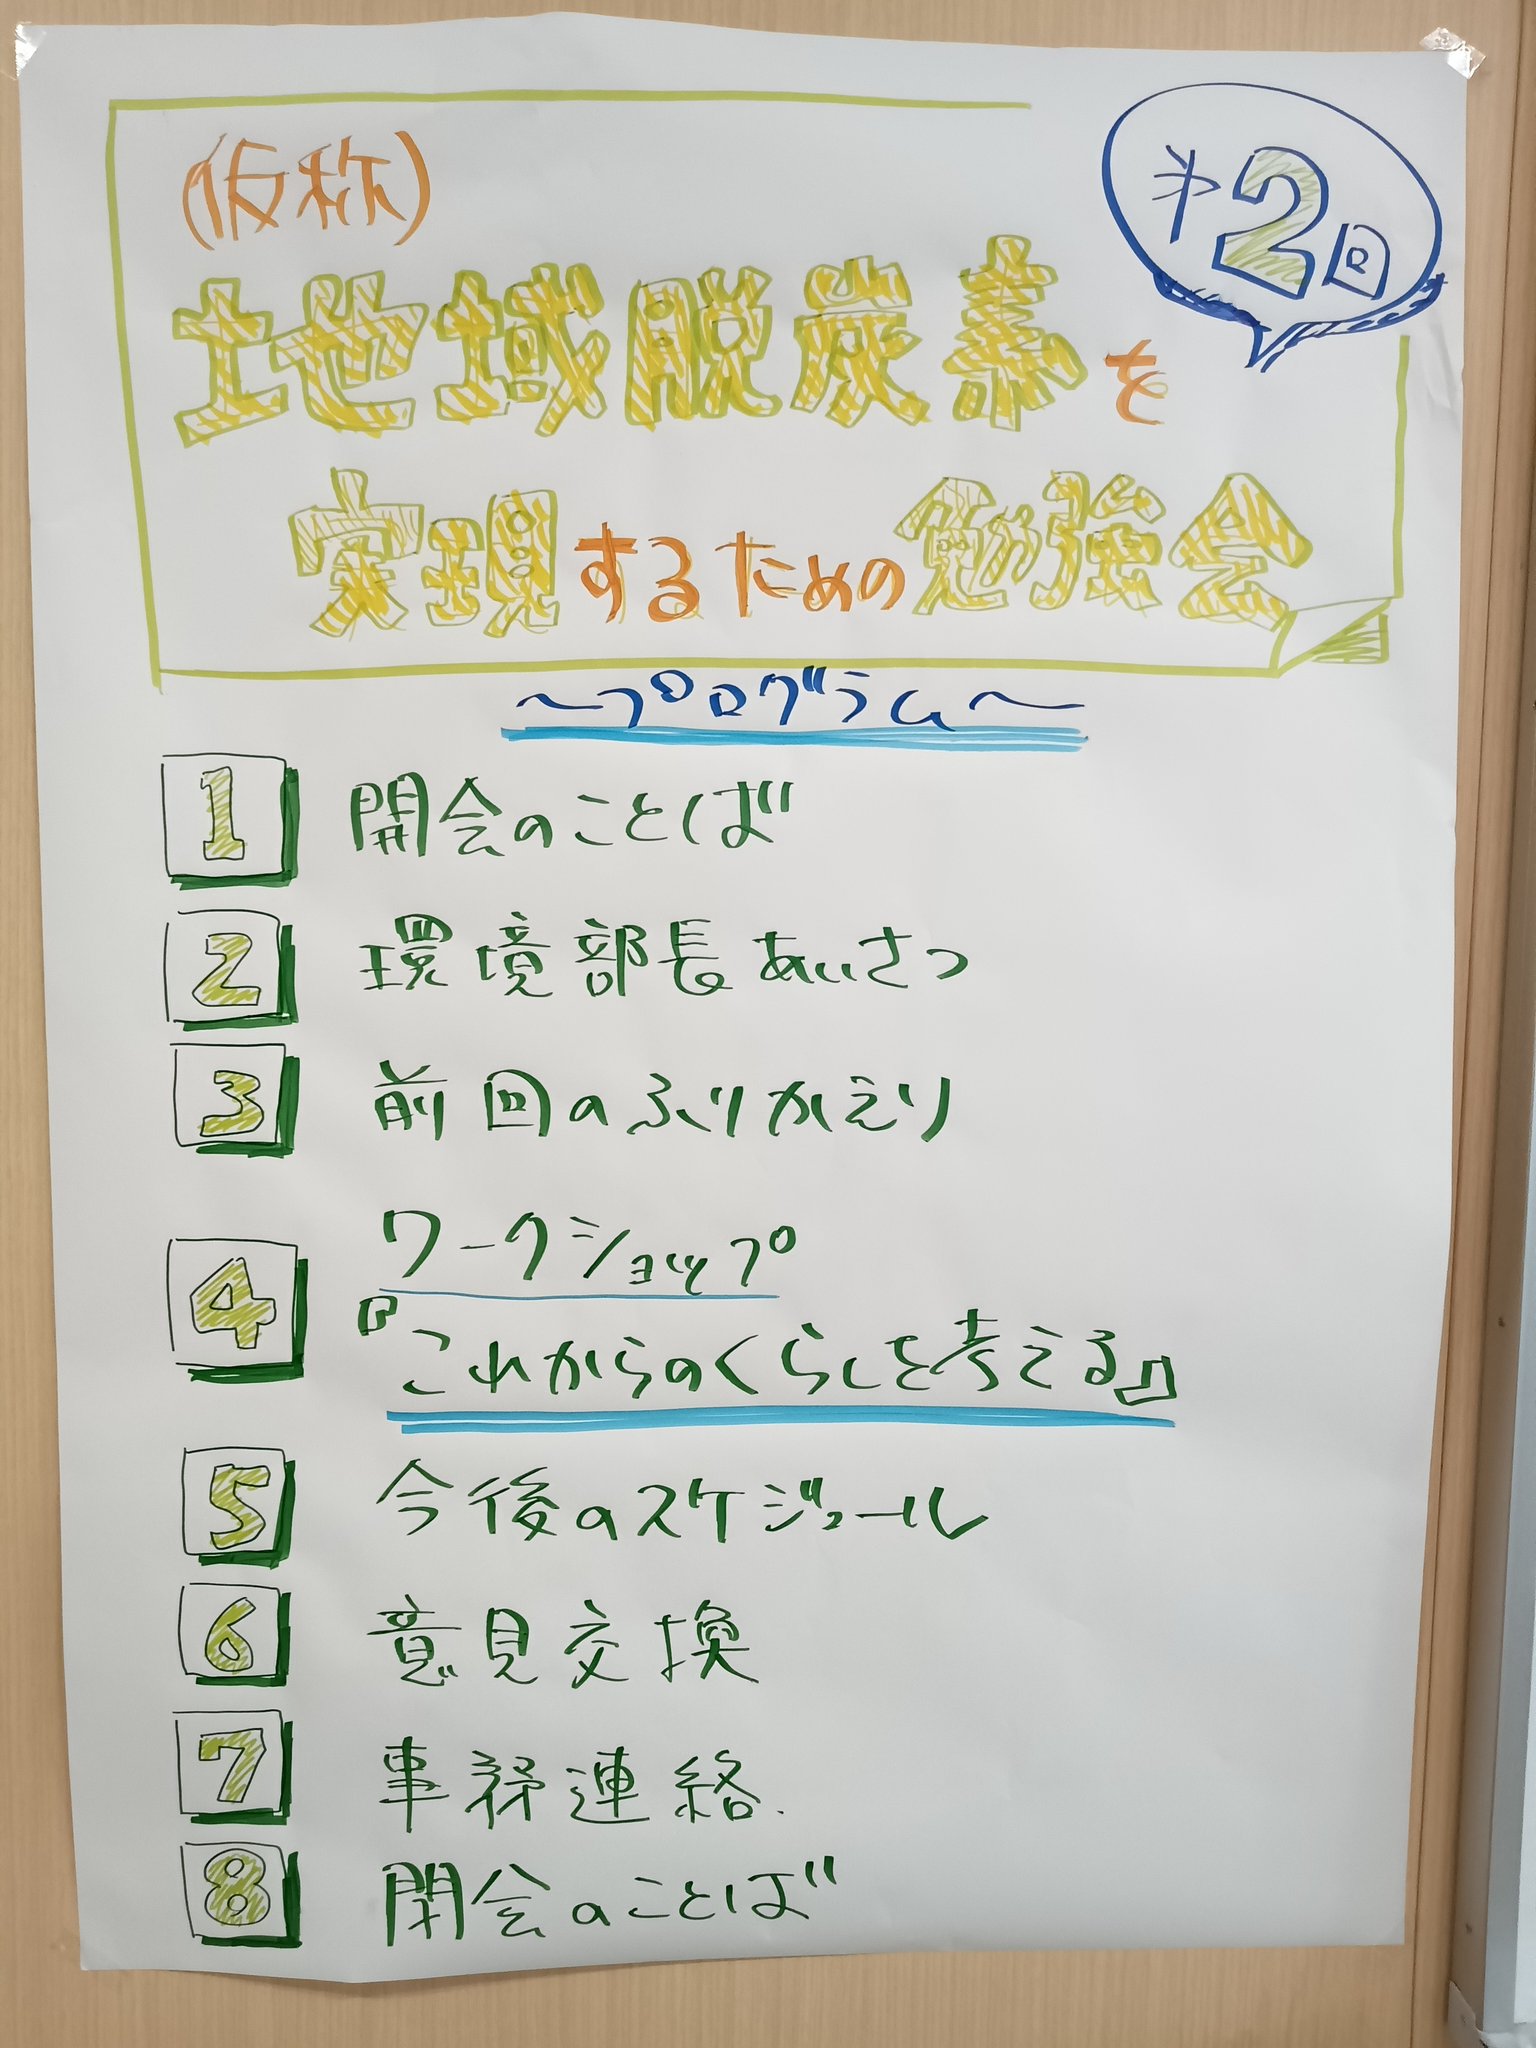 (仮称)
第2回
地域脱炭素を
実現するための勉強会
～プログラム～
1 開会のことば
2 環境部長あいさつ
3 前回のふりかえり
4 ワークショップ
『これからのくらしを考える』
5 今後のスケジュール
6 意見交換
7 事務連絡.
8 閉会のことば